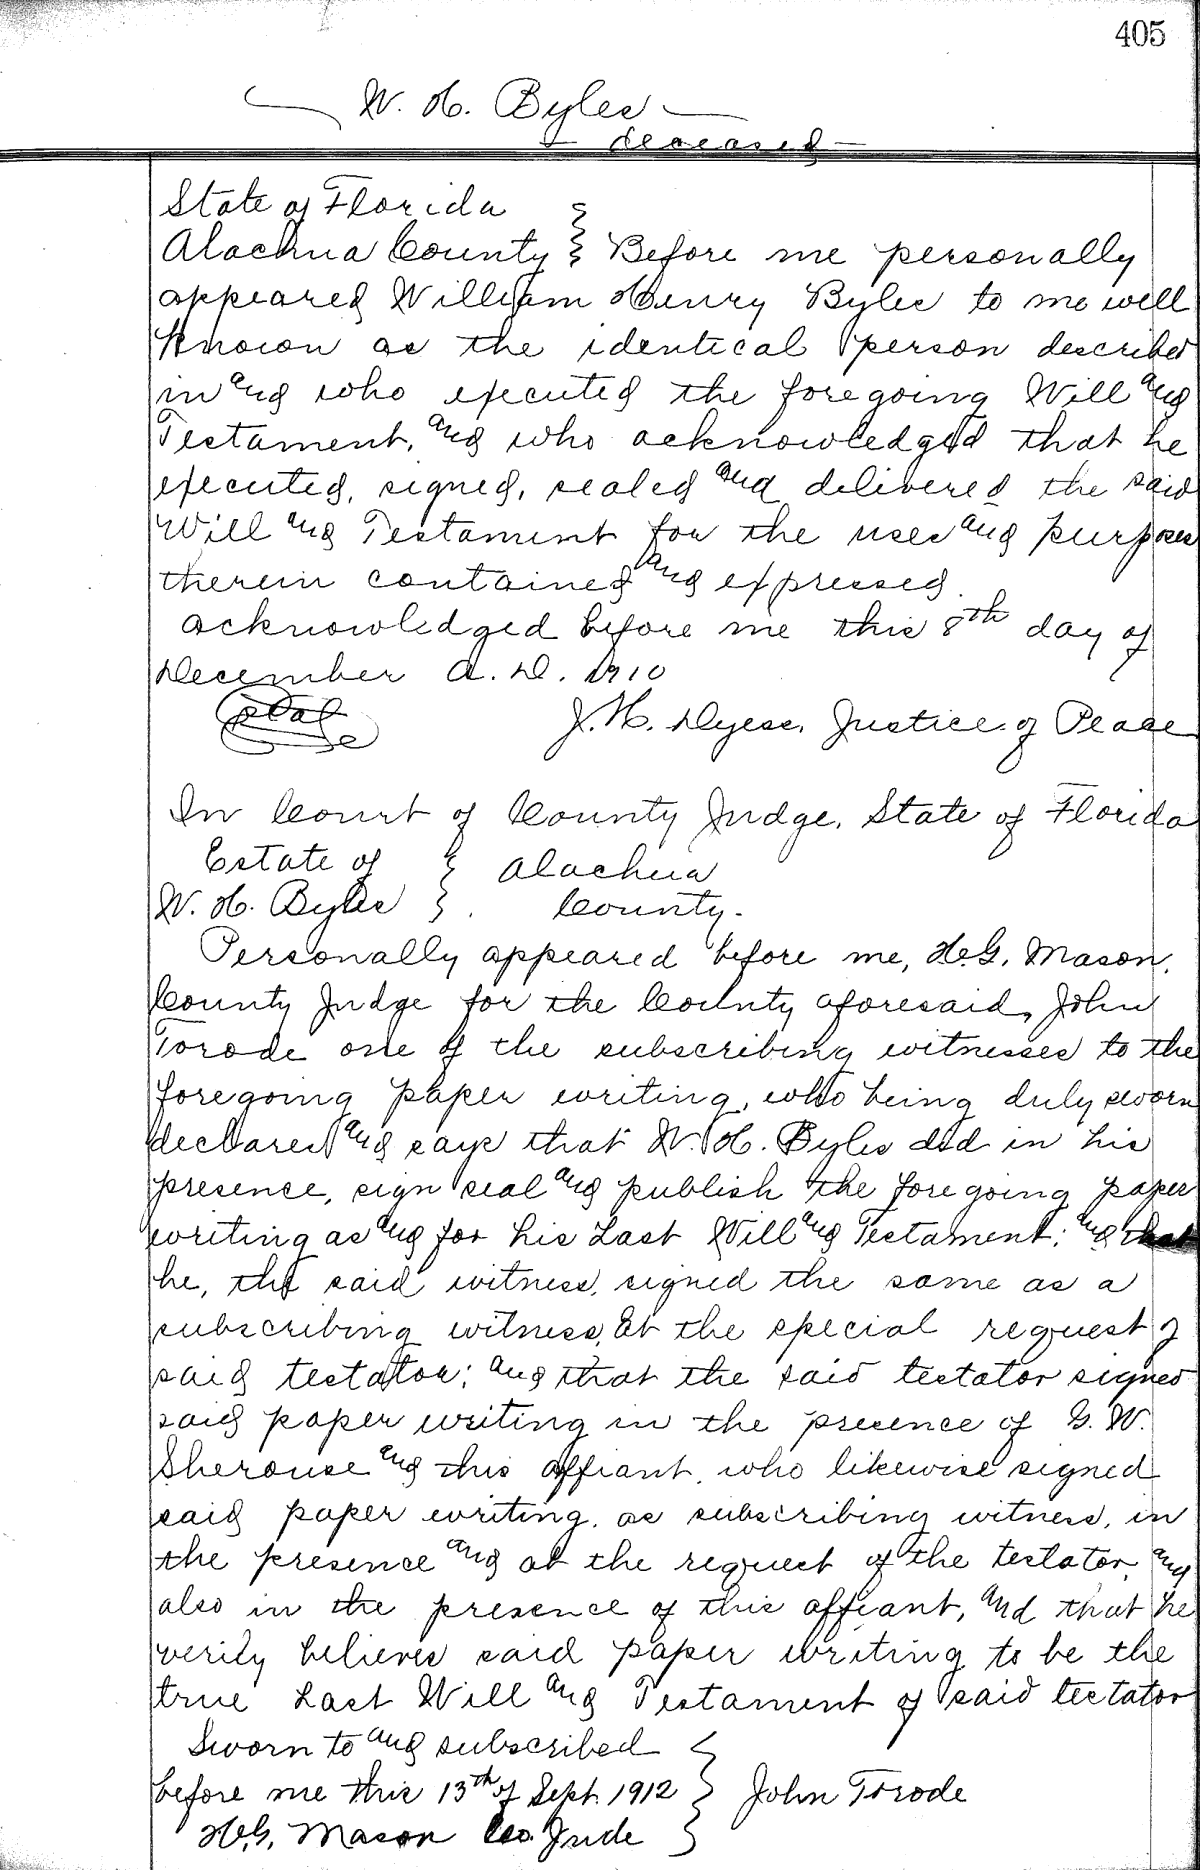 405
W. H. Byles
deceased
State of Florida
Alachua County } Before me personally
appeared William Henry Byles to me well
known as the identical person described
in and who executed the foregoing Will and
Testament, and who acknowledged that he
executed, signed, sealed and delivered the said
Will and Testament for the uses and purposes
therein contained and expressed.
acknowledged before me this 8th day of
December A. D. 1910
Seal J. H. Dyess, Justice of Peace
In Court of County Judge, State of Florida
Estate of } Alachua
W. H. Byles } County.
Personally appeared before me, H.G. Mason,
County Judge for the County aforesaid, John
Torode one of the subscribing witnesses to the
foregoing paper writing, who being duly sworn
declares and says that W. H. Byles did in his
presence, sign seal and publish the foregoing paper
writing as and for his Last Will and Testament; and that
he, the said witness, signed the same as a
subscribing witness, at the special request of
said testator; and that the said testator signed
said paper writing in the presence of G. W.
Sherouse and this affiant, who likewise signed
said paper writing, as subscribing witness, in
the presence and at the request of the testator, and
also in the presence of this affiant, and that he
verily believes said paper writing to be the
true Last Will and Testament of said testator
Sworn to and subscribed
before me this 13th of Sept. 1912 } John Torode
H.G. Mason Co. Jude